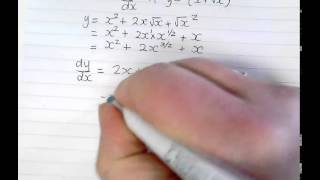 dy/dx y = (1+√x)
y = x² + 2x√x + √x²
= x² + 2x¹x^½ + x
= x² + 2x^(3/2) + x
dy/dx = 2x